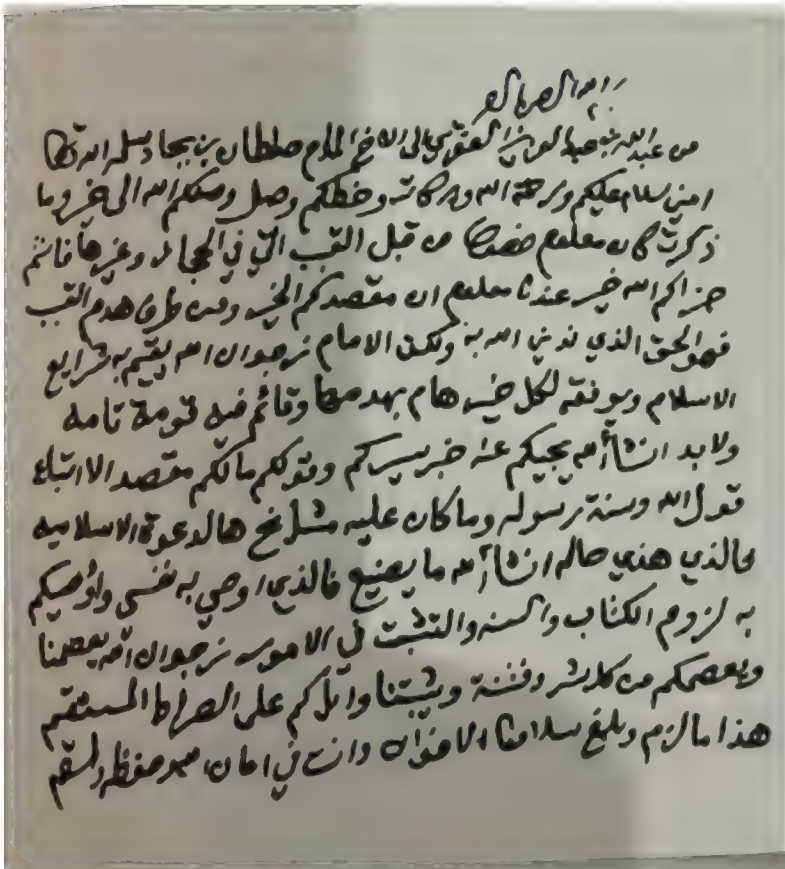 بسم الله الرحمن الرحيم
من عبدالله بن عبدالعزيز العنقري الى الاخ المكرم سلطان بن بجاد سلمه الله تعا
امين سلام عليكم ورحمة الله وبركاته وخطكم وصل وصلكم الله الى خير وما
ذكرت كان معلوم خصوصا من قبل القبب التي في الحجاز وغيرها فانتم
جزاكم الله خير عندنا معلوم ان مقصدكم الخير ومن طرف هدم القبب
فهو الحق الذي ندين الله به ولكن الامام نرجوا ان الله يقيم به شرايع
الاسلام ويوفقه لكل خير هام بهدمها وقائم فيه قومة تامه
ولا بد انشاء الله يجيكم عنه خبر يسركم وقولكم مالكم مقصد الا اتباع
قول الله وسنة رسوله وما كان عليه مشايخ هالدعوة الاسلاميه
فالذي هذي حاله انشاء الله ما يضيع فالذي اوصي به نفسي واوصيكم
به لزوم الكتاب والسنه والتثبت في الامور نرجوا ان الله يعصمنا
ويعصمكم من كل شر وفتنة ويثبتنا واياكم على الصراط المستقيم
هذا ما لزم وبلغ سلامنا الاخوان وانت في امان الله وحفظه والسلام